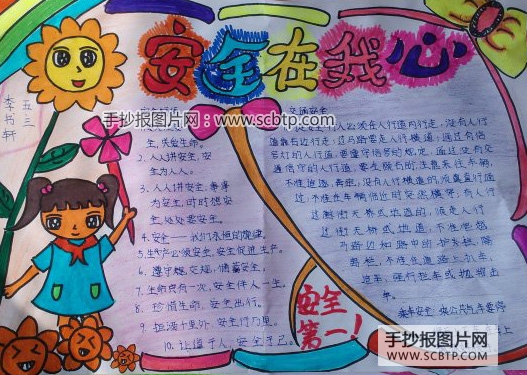 安全在我心
五三
李书轩
手抄报图片网：www.scbtp.com
生，失给生命。
2、人人讲安全，安
全为人人。
3、人人讲安全，事事
为安全，时时想安
全，处处要安全。
4、安全——我们永恒的旋律。
5、生产必须安全，安全促进生产。
6、遵守交规，储蓄安全，
7、生命只有一次，安全伴人一生。
8、珍惜生命，安全出行。
9、拒酒千里外，安全行万里。
10、让道于人，安全于己。
安全
第一！
交通安全
人行道内行走，没有人行
道靠右边行走；过马路要走人行横道；通过有信
号灯的人行道，要遵守信号的规定，通过没有交
通信号的人行道，要左顾右盼，注意来往车辆
不准追逐、奔跑，没有人行横道的应直行通
过，不准在车辆临近时突然横穿；有人行
过街天桥或地道的，须走人行
过街天桥或地道，不准爬登
马路边和路中的护栏、隔
离栏，不准在道路上扒车、
追车、强行拦车或抛物击
车。
乘车安全：乘公共汽车要停
手抄报图片网
WWW.SCBTP.COM